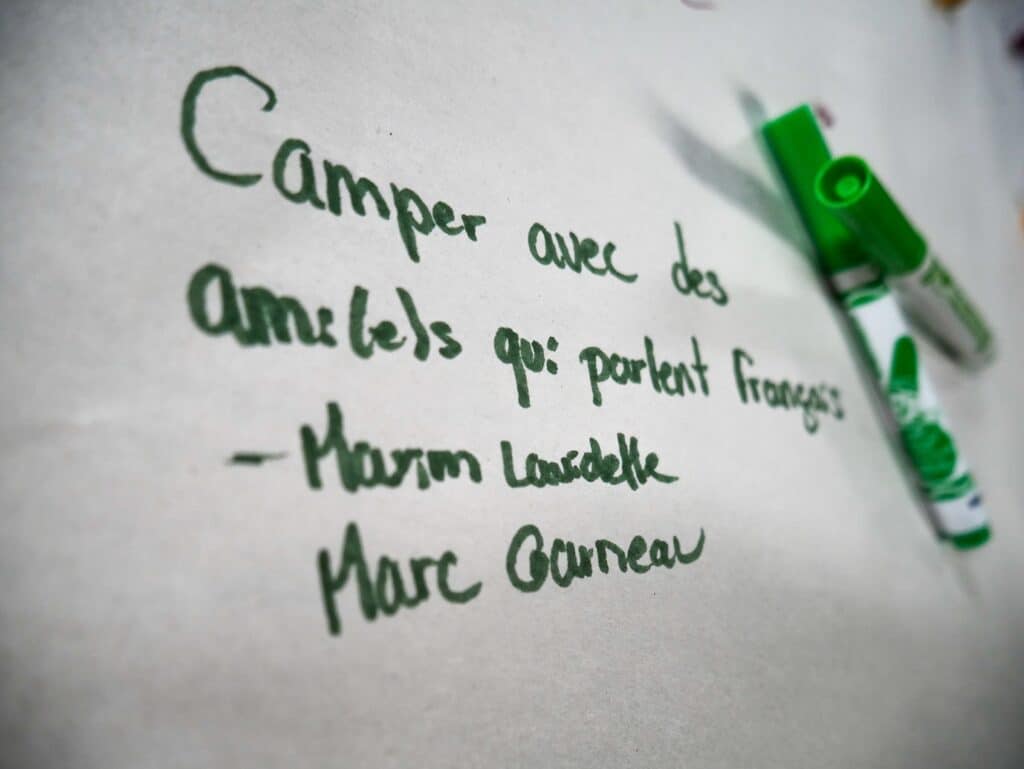 Camper avec des
ami(e)s qui parlent français
- Marim Lasidelle
Marc Garneau